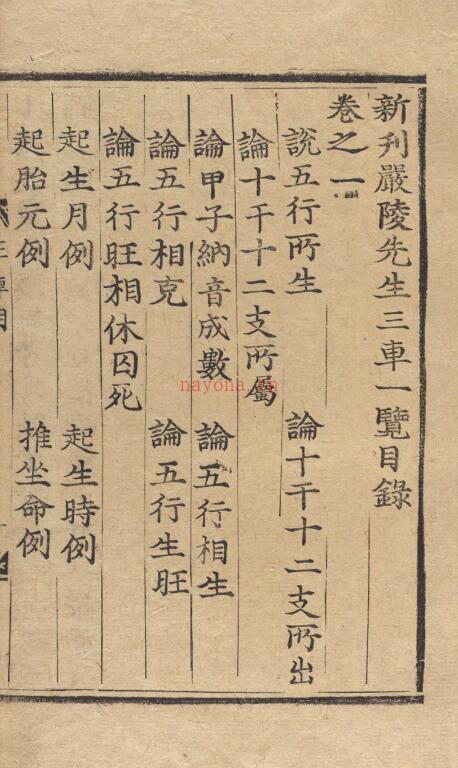 新刋嚴陵先生三車一覽目錄
卷之一
說五行所生 論十干十二支所出
論十干十二支所屬
論甲子納音成數 論五行相生
論五行相克 論五行生旺
論五行旺相休囚死
起生月例 起生時例
起胎元例 推坐命例
nayona.cn